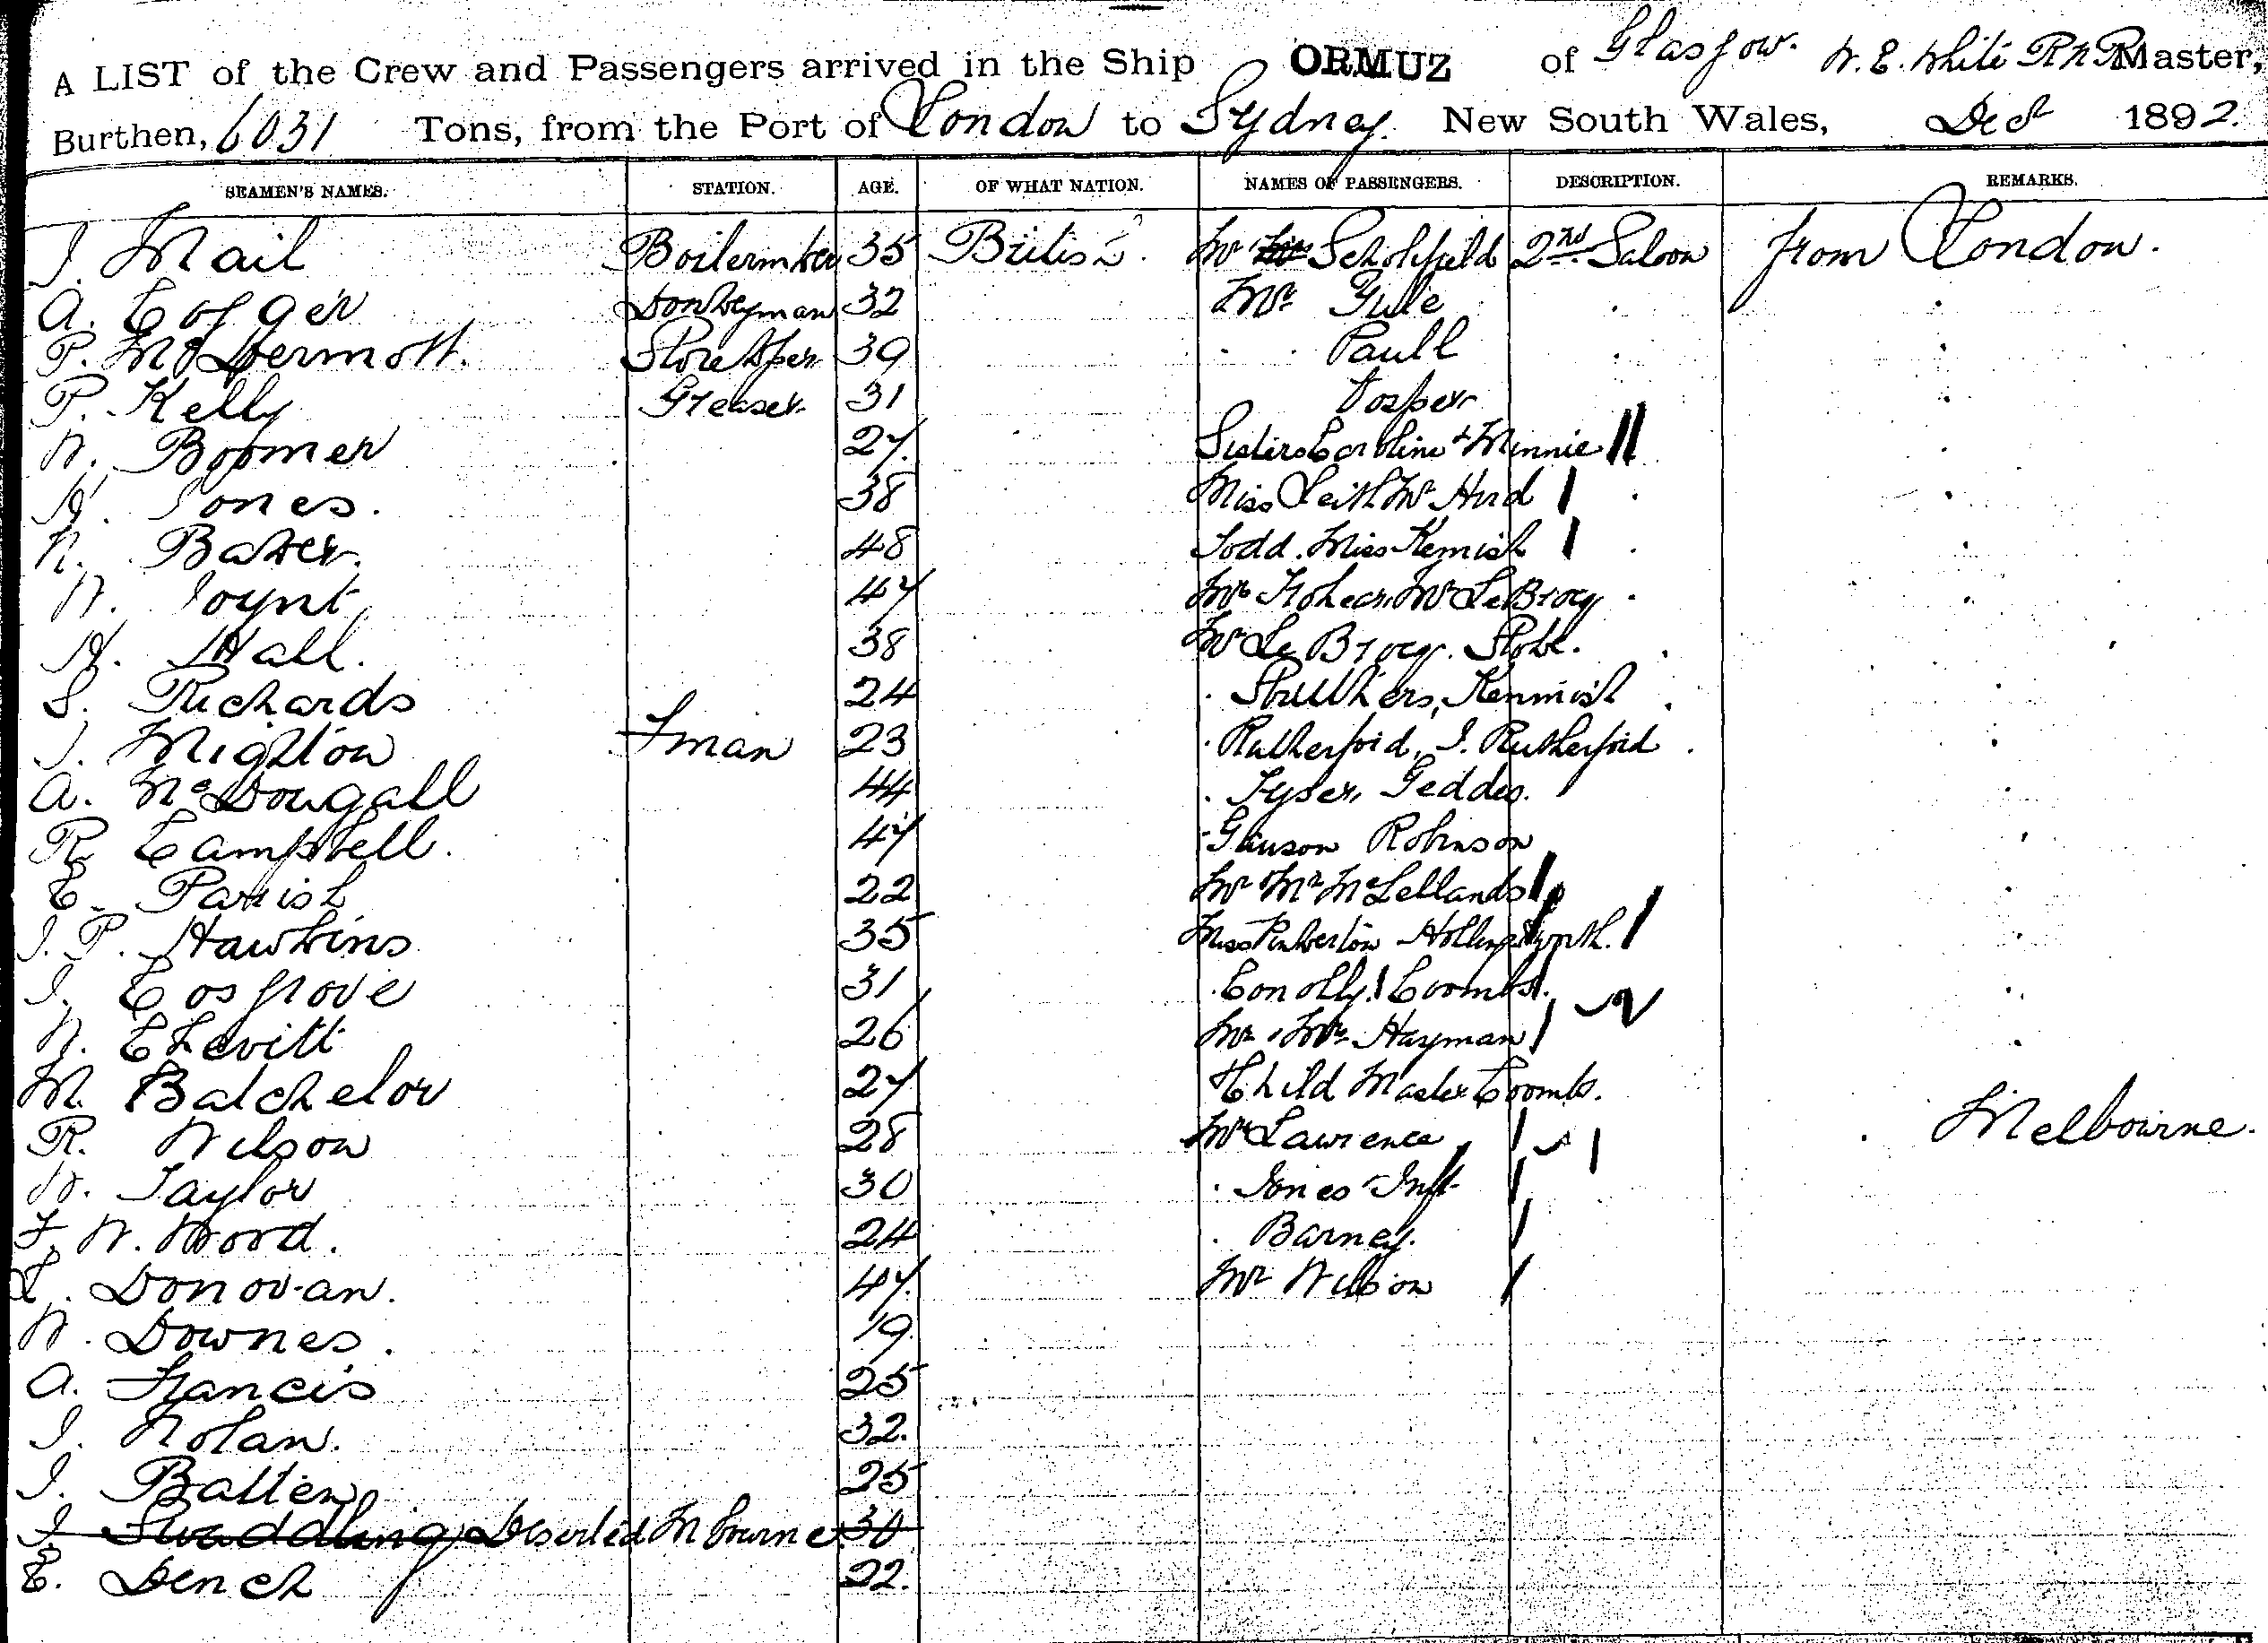 A LIST of the Crew and Passengers arrived in the Ship ORMUZ of Glasgow. W. E. White RNR Master,
Burthen, 6031 Tons, from the Port of London to Sydney. New South Wales, Dec 1892.
SEAMEN'S NAMES. STATION. AGE. OF WHAT NATION. NAMES OF PASSENGERS. DESCRIPTION. REMARKS.
J. Mail Boilermker 35 British. Mr Scholefield 2nd Saloon from London.
A. Cosger Donkeyman 32 Mr Yule
P. McDermott. Storekper 39 Paull
P. Kelly Greaser 31 Vosper
W. Boomer 27 Sisters Caroline & Minnie
H. Jones. 38 Miss Leith Mr Hurd
N. Baker. 48 Todd. Miss Kemish
W. Joynt 47 Mr Le Brocq
H. Hall. 38 Mr Le Brocq.
S. Richards 24 Struthers, Kenmish
J. Mighton Fman 23 Rutherford, J. Rutherford
A. McDougall 44 Tyser, Geddes.
R. Campbell. 47 Robinson
E. Parrish 22 Mr Mr McLellands
J. P. Hawkins 35 Miss Pemberton Hollingsworth.
J. Cosgrove 31 Conolly. Coombs.
W. Chevitt 26 Mr & Mrs Hayman
M. Batchelor 27 Child Master Coombs.
R. Wilson 28 Mr Lawrence Melbourne.
W. Taylor 30 Jones Inft
F. W. Wood. 24 Barney.
L. Donovan. 47. Mr Wilson
W. Downes. 19.
A. Francis 25
J. Nolan. 32.
J. Batten 25
J Swaddling Deserted Mbourne 30
E. Dench 22.